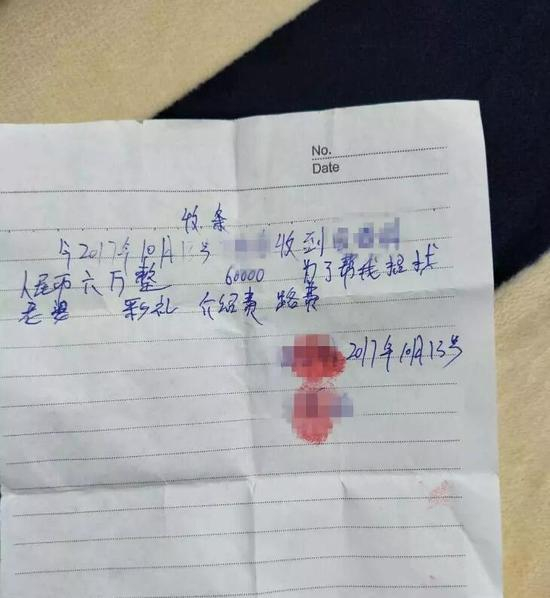 No.
Date
收条
今2017年10月13号 收到
人民币六万整 60000 为了帮我找
老婆 彩礼 介绍费 路费
2017年10月13号